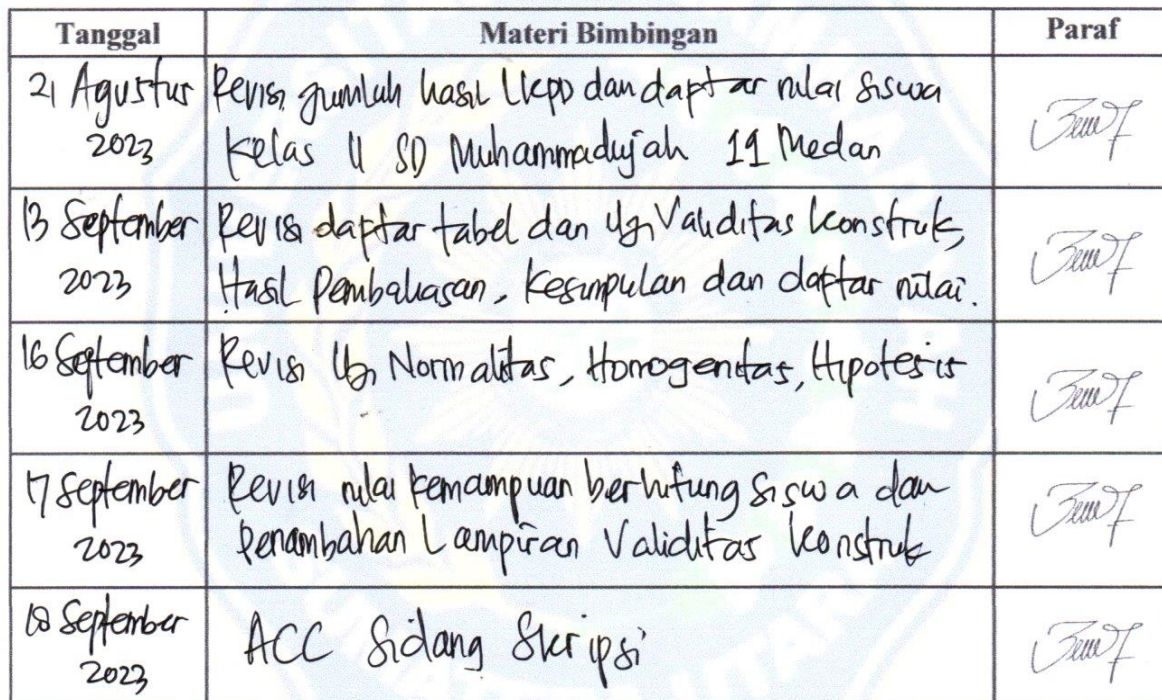 Tanggal Materi Bimbingan Paraf
21 Agustus Revisi jumlah hasil LKPD dan daftar nilai siswa
2023 Kelas II SD Muhammadiyah 19 Medan
13 September Revisi daftar tabel dan Uji Validitas Konstruk,
2023 Hasil Pembahasan, Kesimpulan dan daftar nilai.
16 September Revisi Uji Normalitas, Homogenitas, Hipotesis
2023
17 September Revisi nilai kemampuan berhitung siswa dan
2023 Penambahan Lampiran Validitas Konstruk
18 September ACC Sidang Skripsi
2023